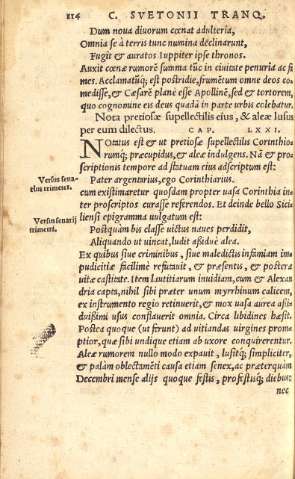 114 C. SVETONII TRANQ.
Dum noua diuorum cœnat adulteria,
Omnia se à terris tunc numina declinarunt,
Fugit & auratos Iuppiter ipse thronos.
Auxit cœnæ rumorẽ summa tũc in ciuitate penuria ac fa
mes. Acclamatũq; est postridie, frumẽtum omne deos co
medisse, & Cæsarẽ planè esse Apollinẽ, sed & tortorem,
quo cognomine eis deus quadã in parte vrbis colebatur.
Nota pretiosæ supellectilis eius, & aleæ lusus
per eum dilectus. CAP. LXXI.
Notatus est & ut pretiosæ supellectilis Corinthio
rumq; præcupidus, & aleæ indulgens. Nã & pro=
scriptionis tempore ad statuam eius adscriptum est:
Versus sena=
rius trimeter.
Pater argentarius, ego Corinthiarius.
cum existimaretur quosdam propter uasa Corinthia in=
ter proscriptos curasse referendos. Et deinde bello Sici
liensi epigramma uulgatum est:
Versus senarij
trimetri.
Postquàm bis classe victus naues perdidit,
Aliquando ut uincat, ludit aßiduè aleã.
Ex quibus siue criminibus, siue maledictis infamiam im
pudicitiæ facillimè refutauit, & præsentis, & posteræ
uitæ castitate. Item Lautitiarum inuidiam, cum & Alexan
dria capta, nihil sibi præter unum myrrhinum calicem,
ex instrumento regio retinuerit, & mox uasa aurea aßi=
duißimi usus conflauerit omnia. Circa libidines hæsit.
Postea quoque (ut ferunt) ad uitiandas uirgines prom=
ptior, quæ sibi undique etiam ab uxore conquirerentur.
Aleæ rumorem nullo modo expauit, lusitq; simpliciter,
& palàm oblectamẽti causa etiam senex, ac præterquam
Decembri mense alijs quoque festis, profestisq; diebus
nec